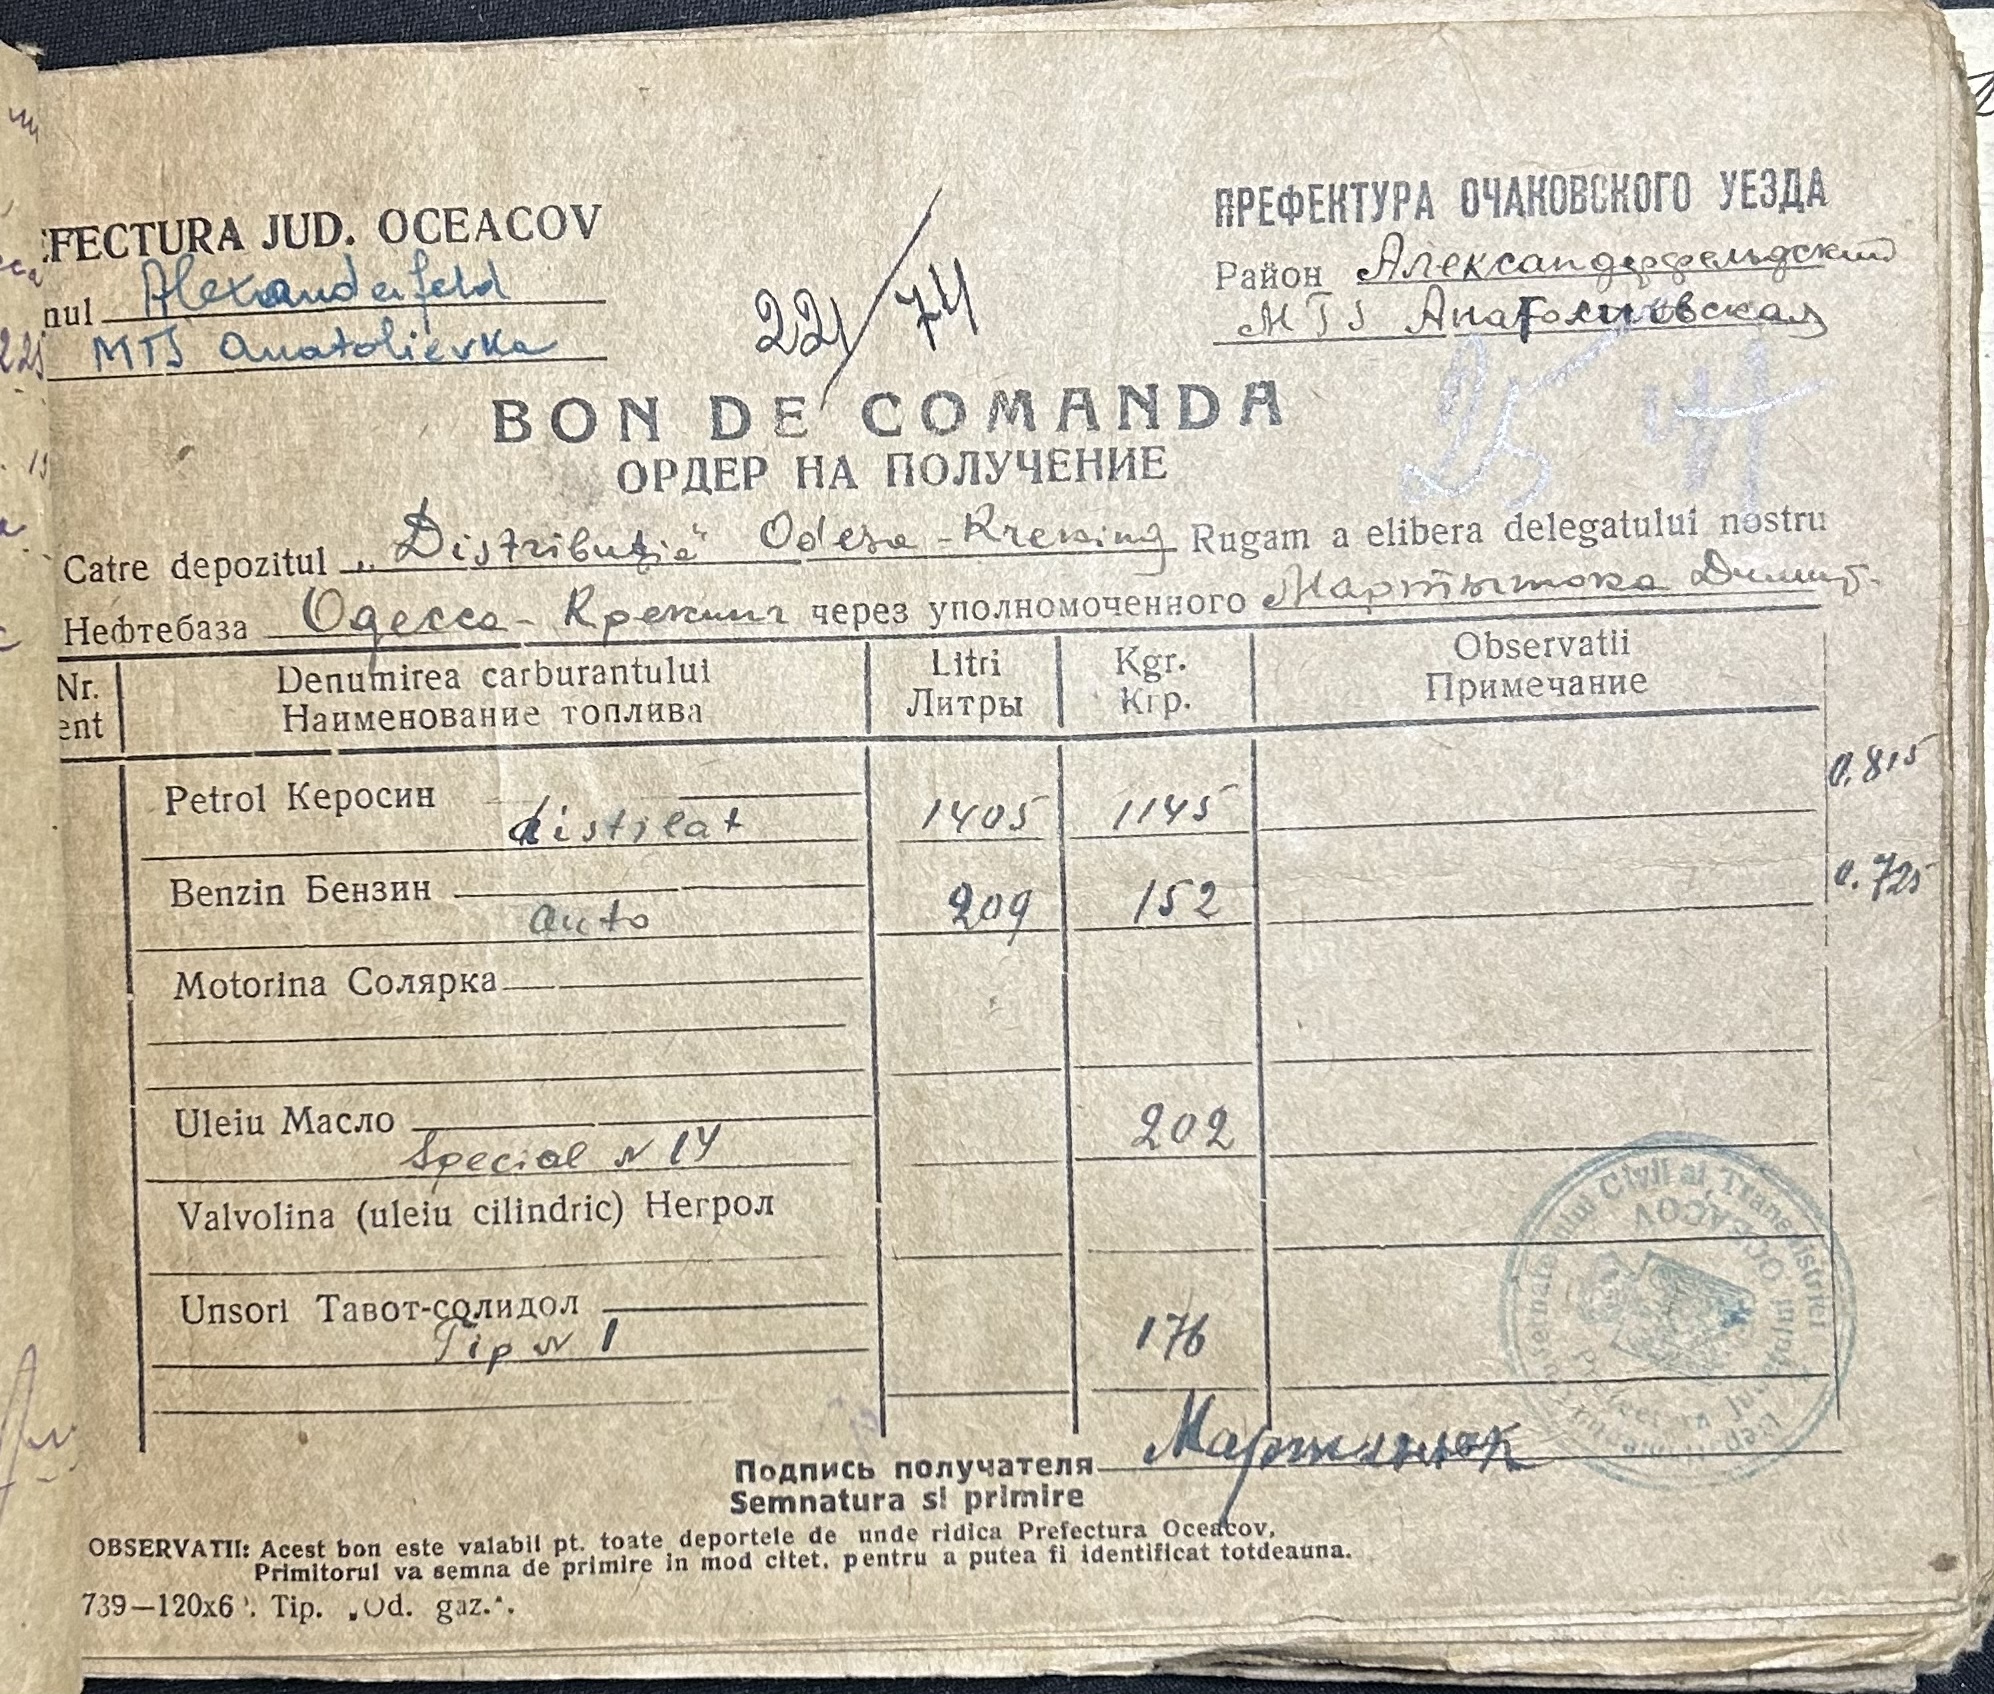 FECTURA JUD. OCEACOV
nul Alexanderfeld
MTS Anatolievka
22/74
ПРЕФЕКТУРА ОЧАКОВСКОГО УЕЗДА
Район Александерфельдский
MTS Анатолиевская
25
BON DE COMANDA
ОРДЕР НА ПОЛУЧЕНИЕ
Catre depozitul „Distribuția" Odesa-Kreking Rugam a elibera delegatului nostru
Нефтебаза Одесса-Крекинг через уполномоченного
Nr.
ent
Denumirea carburantului
Наименование топлива
Litri
Литры
Kgr.
Кгр.
Observatii
Примечание
Petrol Керосин
distilat
1405
1145
0.815
Benzin Бензин
auto
209
152
0.725
Motorina Солярка
Uleiu Масло
Special N 14
202
Valvolina (uleiu cilindric) Негрол
Unsori Тавот-солидол
Tip N 1
176
Подпись получателя Мартынюк
Semnatura si primire
OBSERVATII: Acest bon este valabil pt. toate deportele de unde ridica Prefectura Oceacov,
Primitorul va semna de primire in mod citet, pentru a putea fi identificat totdeauna.
739—120x6 . Tip. „Od. gaz.".
Civil al Transnistriei
Prefectura Județului OCEACOV